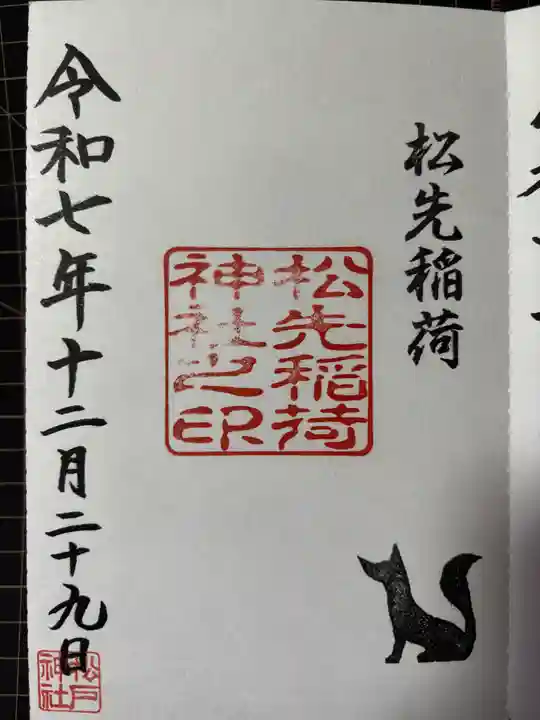 松先稲荷
松先稲荷
神社之印
令和七年十二月二十九日
松戸
神社